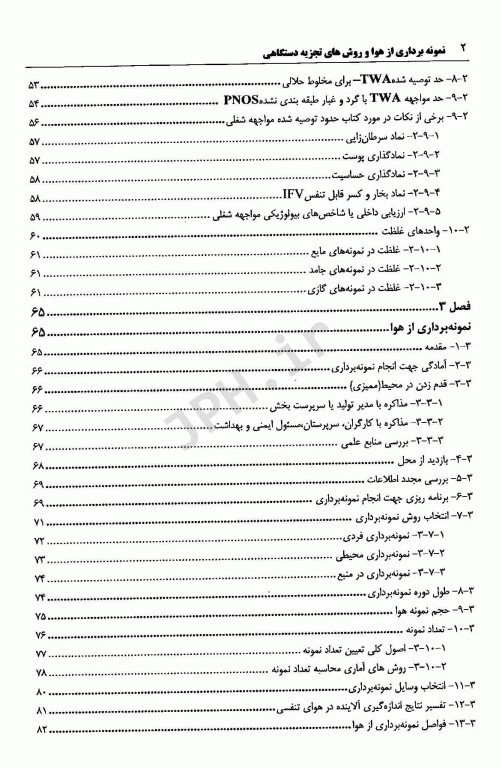 ۲ نمونه برداری از هوا و روش های تجزیه دستگاهی
۲-۸- حد توصیه شده TWA– برای مخلوط حلالی ۵۳
۲-۹- حد مواجهه TWA با گرد و غبار طبقه بندی نشده PNOS ۵۴
۲-۹- برخی از نکات در مورد کتاب حدود توصیه شده مواجهه شغلی ۵۶
۲-۹-۱- نماد سرطان‌زایی ۵۷
۲-۹-۲- نمادگذاری پوست ۵۷
۲-۹-۳- نمادگذاری حساسیت ۵۸
۲-۹-۴- نماد بخار و کسر قابل تنفس IFV ۵۸
۲-۹-۵- ارزیابی داخلی یا شاخص‌های بیولوژیکی مواجهه شغلی ۵۹
۲-۱۰- واحدهای غلظت ۶۰
۲-۱۰-۱- غلظت در نمونه‌های مایع ۶۱
۲-۱۰-۲- غلظت در نمونه‌های جامد ۶۱
۲-۱۰-۳- غلظت در نمونه‌های گازی ۶۱
فصل ۳ ۶۵
نمونه‌برداری از هوا ۶۵
۳-۱- مقدمه ۶۵
۳-۲- آمادگی جهت انجام نمونه‌برداری ۶۶
۳-۳- قدم زدن در محیط(ممیزی) ۶۶
۳-۳-۱- مذاکره با مدیر تولید یا سرپرست بخش ۶۶
۳-۳-۲- مذاکره با کارگران، سرپرستان،مسئول ایمنی و بهداشت ۶۷
۳-۳-۳- بررسی منابع علمی ۶۷
۳-۴- بازدید از محل ۶۸
۳-۵- بررسی مجدد اطلاعات ۶۹
۳-۶- برنامه ریزی جهت انجام نمونه‌برداری ۶۹
۳-۷- انتخاب روش نمونه‌برداری ۷۱
۳-۷-۱- نمونه‌برداری فردی ۷۲
۳-۷-۲- نمونه‌برداری محیطی ۷۳
۳-۷-۳- نمونه‌برداری در منبع ۷۴
۳-۸- طول دوره نمونه‌برداری ۷۴
۳-۹- حجم نمونه هوا ۷۵
۳-۱۰- تعداد نمونه ۷۶
۳-۱۰-۱- اصول کلی تعیین تعداد نمونه ۷۷
۳-۱۰-۲- روش های آماری محاسبه تعداد نمونه ۷۸
۳-۱۱- انتخاب وسایل نمونه‌برداری ۸۰
۳-۱۲- تفسیر نتایج اندازه‌گیری آلاینده در هوای تنفسی ۸۱
۳-۱۳- فواصل نمونه‌برداری از هوا ۸۲
JPH.ir